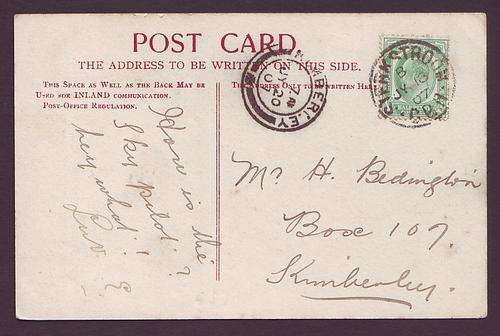 POST CARD.
THE ADDRESS TO BE WRITTEN ON THIS SIDE.
THIS SPACE AS WELL AS THE BACK MAY BE
USED FOR INLAND COMMUNICATION.
POST-OFFICE REGULATION.
THE ADDRESS ONLY TO BE WRITTEN HERE
KIMBERLEY
KLERKSDROOM
How is the
Sky pilot?
hey what!
Mr H. Bedington
Box 107.
Kimberley.